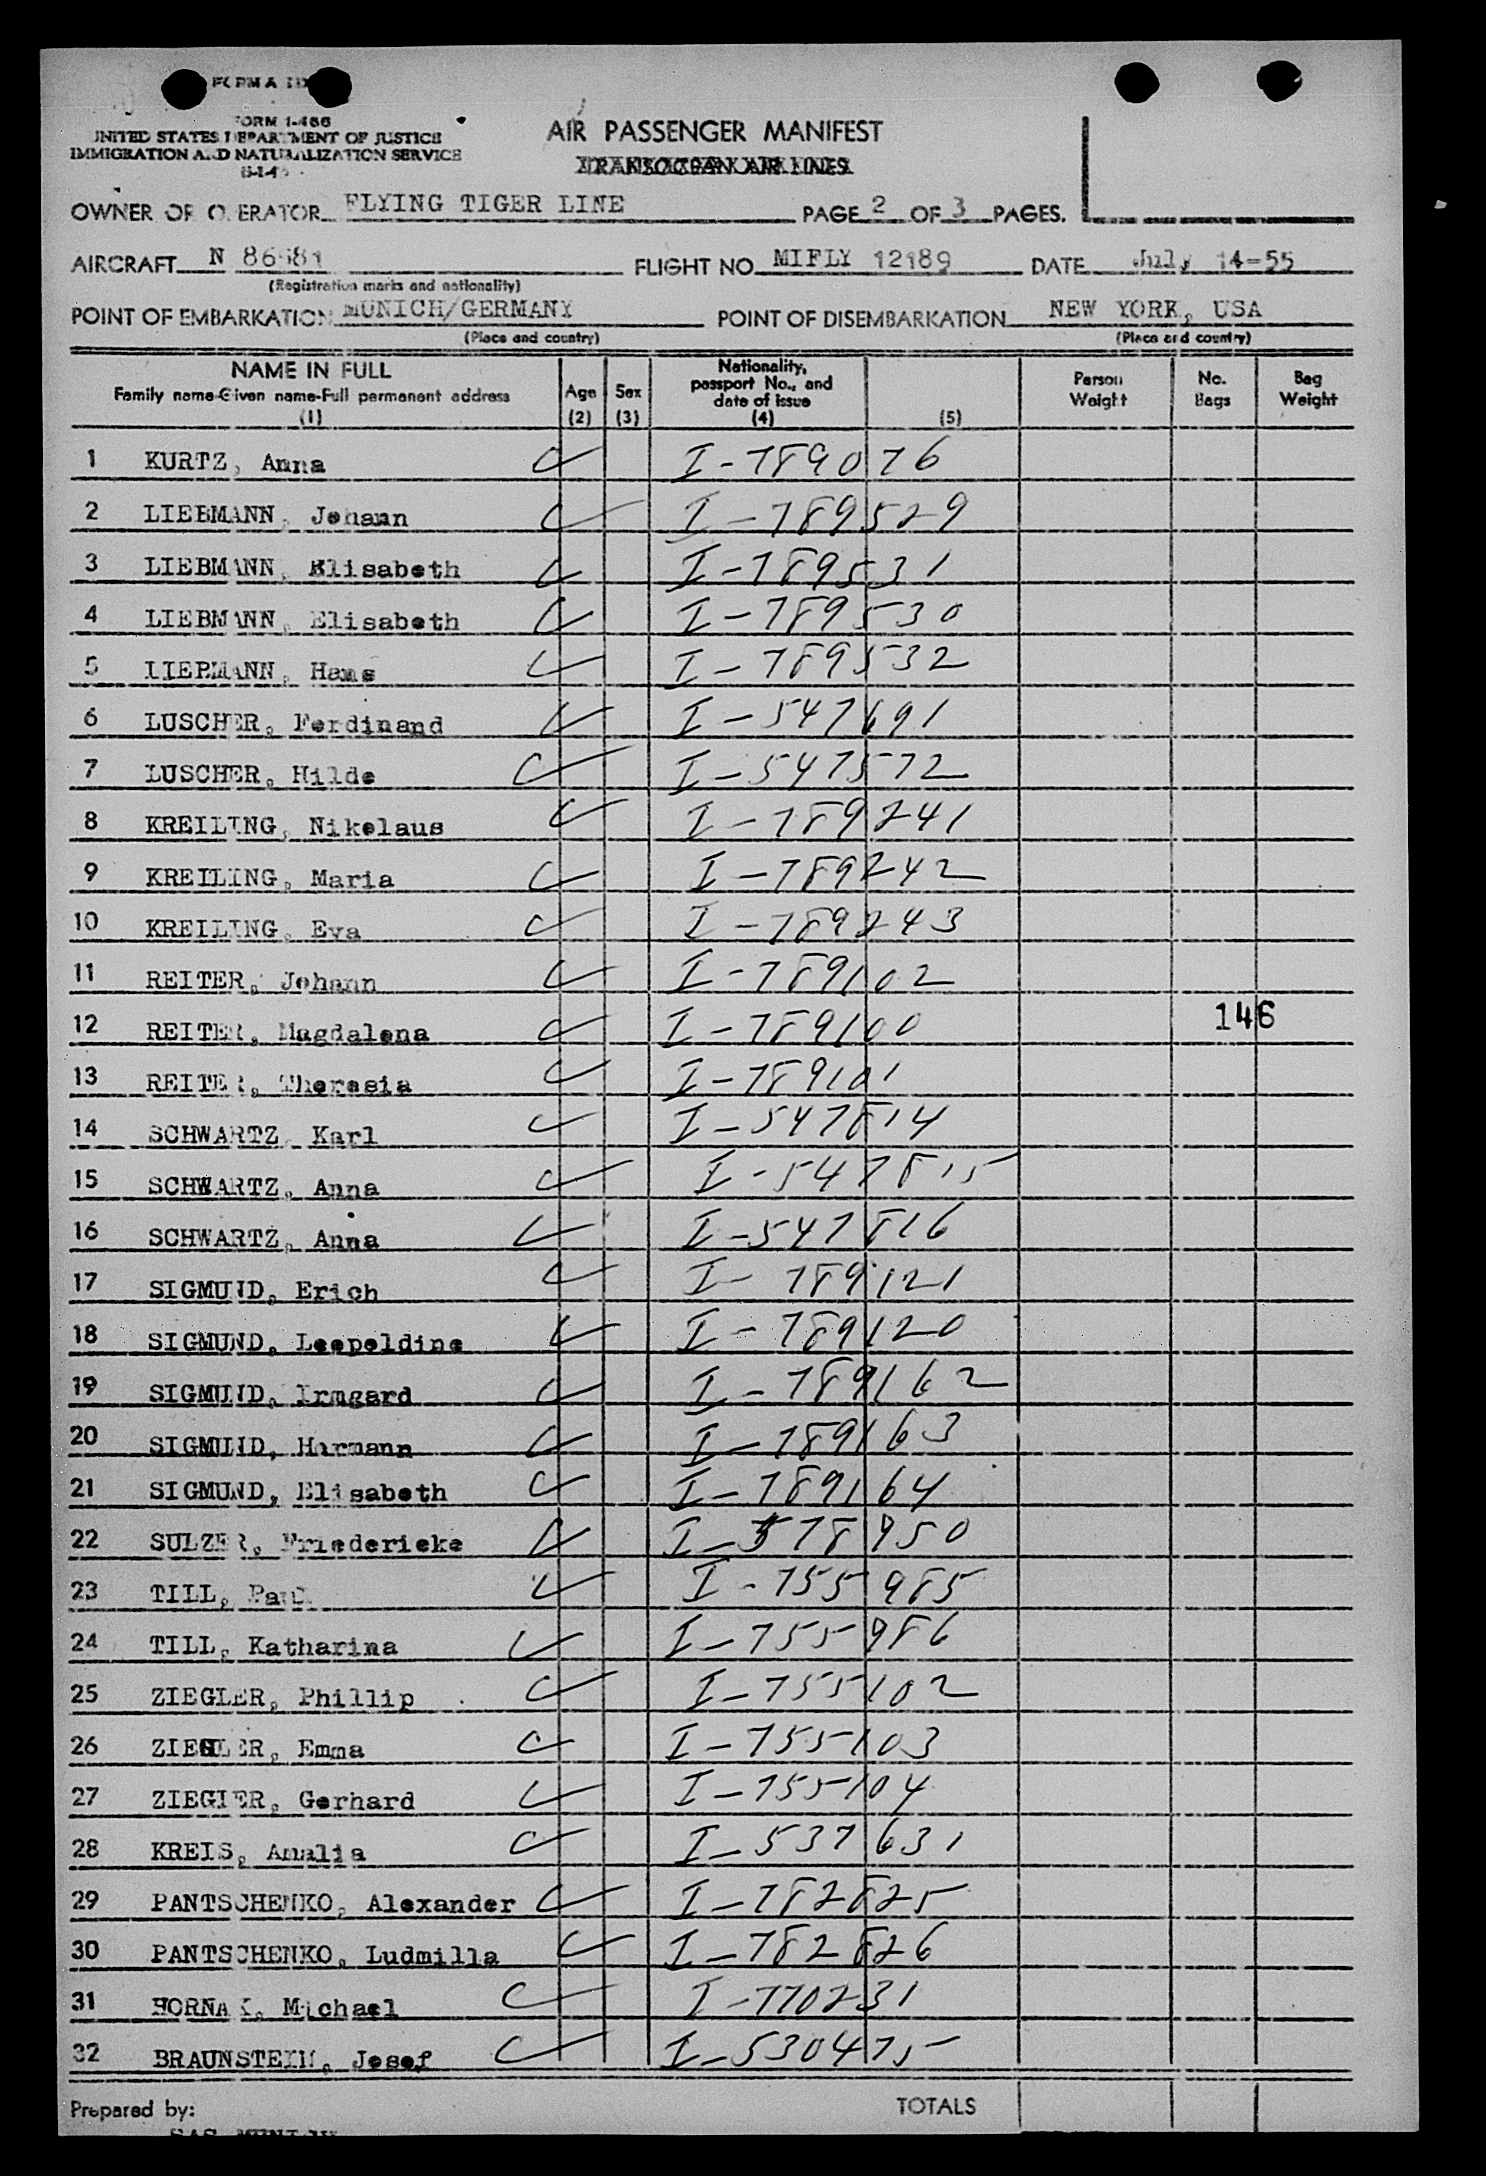 FORM I-466
UNITED STATES DEPARTMENT OF JUSTICE
IMMIGRATION AND NATURALIZATION SERVICE
AIR PASSENGER MANIFEST
TRANSOCEAN AIR LINES
OWNER OR OPERATOR FLYING TIGER LINE PAGE 2 OF 3 PAGES.
AIRCRAFT N 86581 FLIGHT NO MIFLY 12189 DATE July 14-55
(Registration marks and nationality)
POINT OF EMBARKATION MUNICH/GERMANY POINT OF DISEMBARKATION NEW YORK, USA
(Place and country) (Place and country)
NAME IN FULL
Family name-Given name-Full permanent address
(1)
Age
(2)
Sex
(3)
Nationality,
passport No., and
date of issue
(4)
(5)
Person
Weight
No.
Bags
Bag
Weight
1 KURTZ, Anna I-789076
2 LIEBMANN, Johann I-789529
3 LIEBMANN, Elisabeth I-789531
4 LIEBMANN, Elisabeth I-789530
5 LIEBMANN, Hans I-789532
6 LUSCHER, Ferdinand I-547691
7 LUSCHER, Hilde I-547572
8 KREILING, Nikolaus I-789241
9 KREILING, Maria I-789242
10 KREILING, Eva I-789243
11 REITER, Johann I-789102
12 REITER, Magdalena I-789100 146
13 REITER, Theresia I-789101
14 SCHWARTZ, Karl I-547814
15 SCHWARTZ, Anna I-547815
16 SCHWARTZ, Anna I-547816
17 SIGMUND, Erich I-789121
18 SIGMUND, Leopoldine I-789120
19 SIGMUND, Irmgard I-789162
20 SIGMUND, Hermann I-789163
21 SIGMUND, Elisabeth I-789164
22 SULZER, Friederieke I-578950
23 TILL, Paul I-755985
24 TILL, Katharina I-755986
25 ZIEGLER, Phillip I-755102
26 ZIEGLER, Emma I-755103
27 ZIEGLER, Gerhard I-755104
28 KREIS, Amalia I-537631
29 PANTSCHENKO, Alexander I-782825
30 PANTSCHENKO, Ludmilla I-782826
31 HORNAK, Michael I-770231
32 BRAUNSTEIN, Josef I-530475
Prepared by: TOTALS